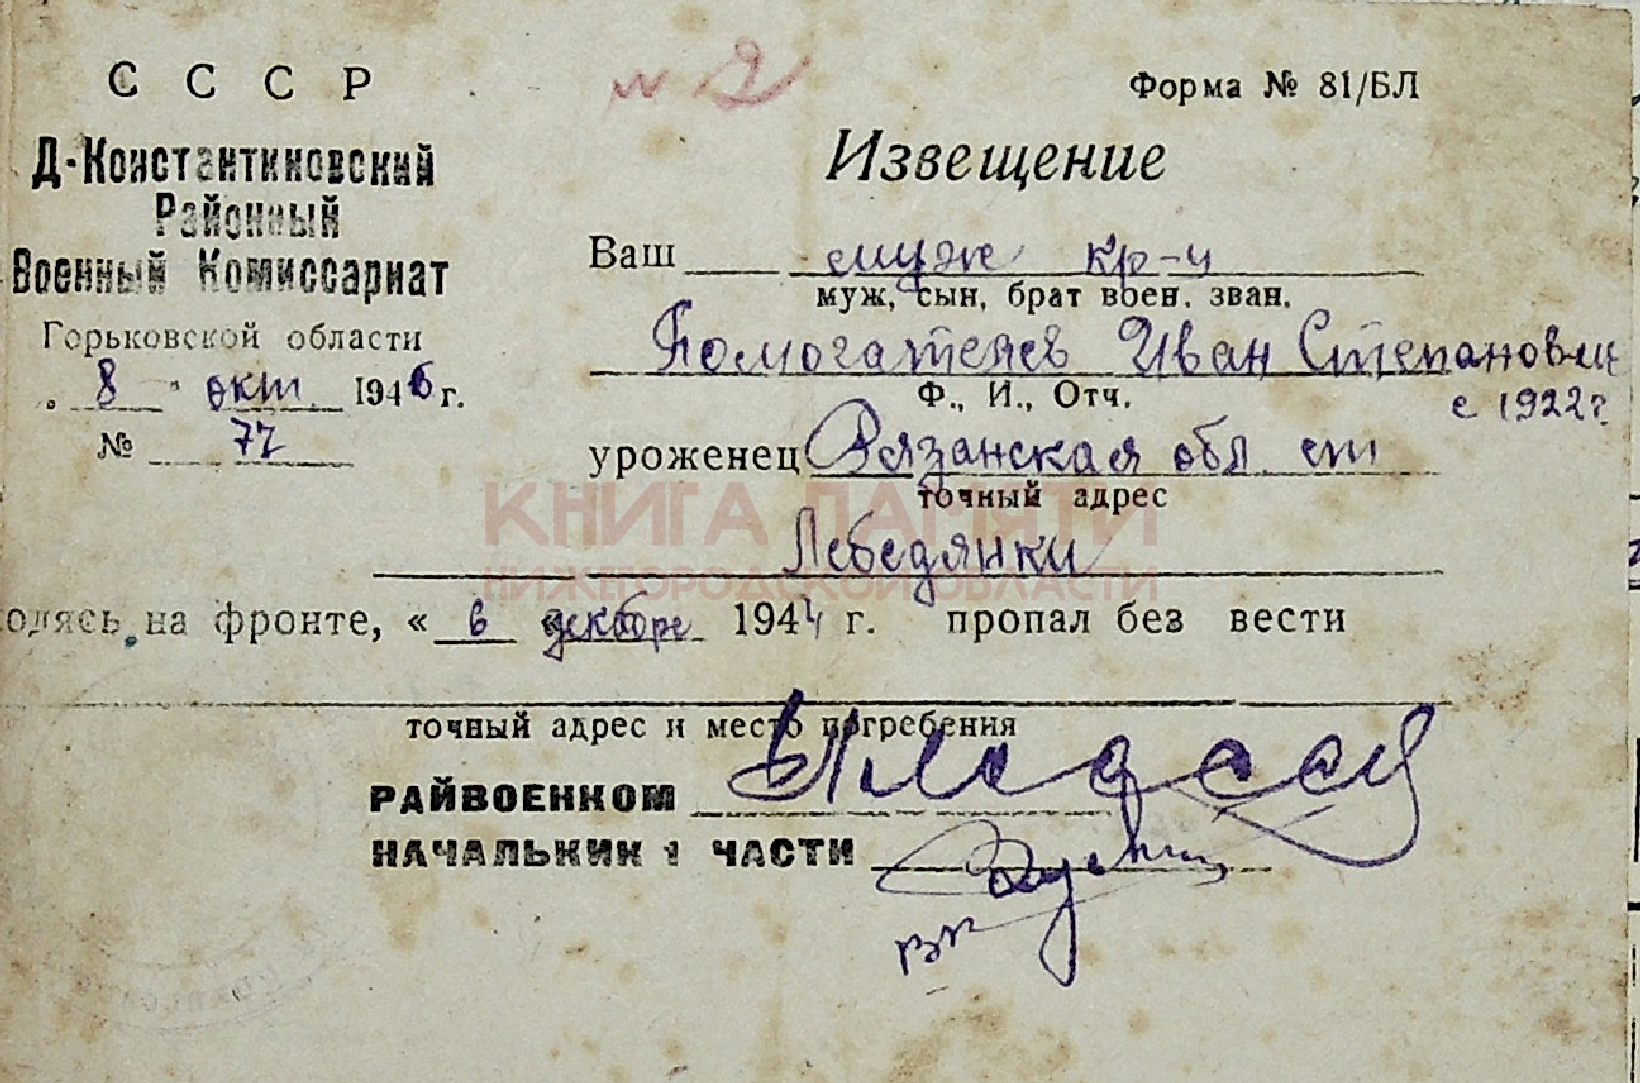 СССР
№ 2
Форма № 81/БЛ
Д-Константиновский
Районный
Военный Комиссариат
Горьковской области
" 8 " окт 1946 г.
№ 72
Извещение
Ваш муж кр-ц
муж, сын, брат воен. зван.
Помогатеяев Иван Степанович
Ф., И., Отч.
с 1922 г
уроженец Рязанская обл ст
точный адрес
Лебедянки
КНИГА ПАМЯТИ
НИЖЕГОРОДСКОЙ ОБЛАСТИ
одясь на фронте, « 6 « декабре 1944 г. пропал без вести
точный адрес и место погребения
РАЙВОЕНКОМ
НАЧАЛЬНИК 1 ЧАСТИ